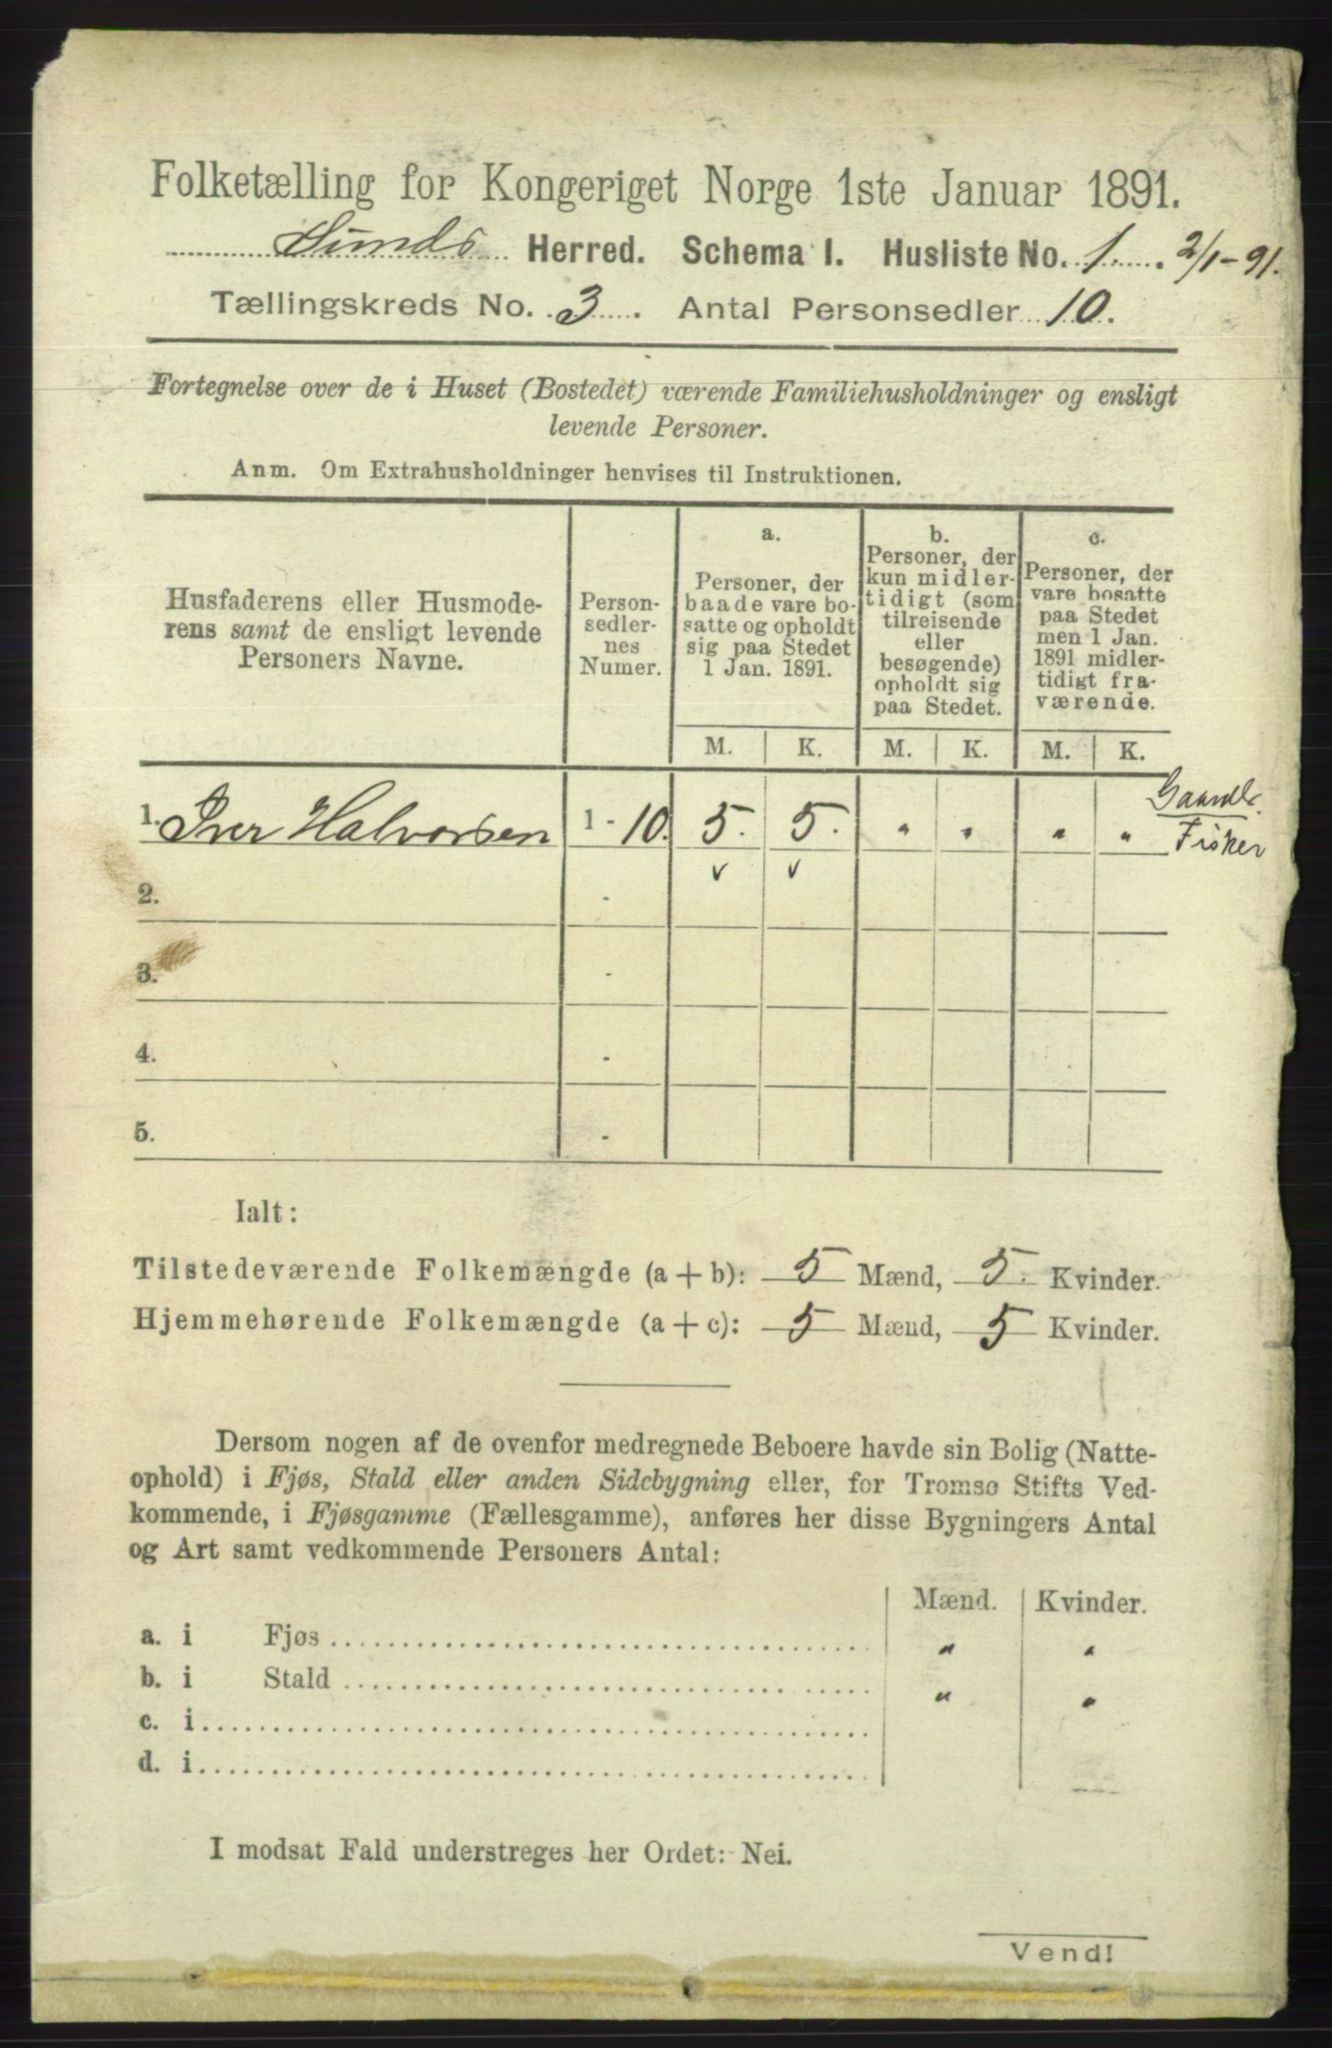 Folketælling for Kongeriget Norge 1ste Januar 1891.
Sunds Herred. Schema I. Husliste No. 1. 2/1-91.
Tællingskreds No. 3. Antal Personsedler 10.
Fortegnelse over de i Huset (Bostedet) værende Familiehusholdninger og ensligt
levende Personer.
Anm. Om Extrahusholdninger henvises til Instruktionen.
Husfaderens eller Husmode-
rens samt de ensligt levende
Personers Navne.
Person-
sedler-
nes
Numer.
a.
Personer, der
baade vare bo-
satte og opholdt
sig paa Stedet
1 Jan. 1891.
b.
Personer, der
kun midler-
tidigt (som
tilreisende
eller
besøgende)
opholdt sig
paa Stedet.
c.
Personer, der
vare bosatte
paa Stedet
men 1 Jan.
1891 midler-
tidigt fra-
værende.
M. K. M. K. M. K.
1. Iver Halvorsen 1 - 10. 5. 5. " " " " Gaardbr.
Fisker
2. -
3. -
4. -
5. -
Ialt:
Tilstedeværende Folkemængde (a + b): 5 Mænd, 5. Kvinder.
Hjemmehørende Folkemængde (a + c): 5 Mænd, 5 Kvinder.
Dersom nogen af de ovenfor medregnede Beboere havde sin Bolig (Natte-
ophold) i Fjøs, Stald eller anden Sidebygning eller, for Tromsø Stifts Ved-
kommende, i Fjøsgamme (Fællesgamme), anføres her disse Bygningers Antal
og Art samt vedkommende Personers Antal:
Mænd. Kvinder.
a. i Fjøs " "
b. i Stald " "
c. i
d. i
I modsat Fald understreges her Ordet: Nei.
Vend!